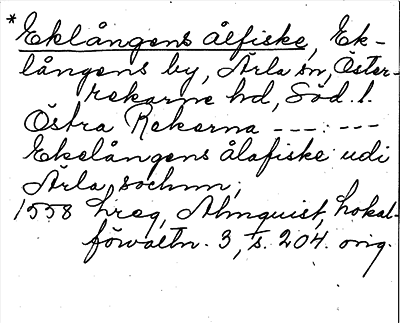 *Eklångens ålfiske, Ek-
långens by, Ärla sn, Öster-
rekarne hd, Söd. l.
Östra Rekarna --- : ---
Ekelångens ålafiske udi
Ärla sochnn;
1558 hreg, Almquist, Lokal-
förvaltn. 3, s. 204. orig.